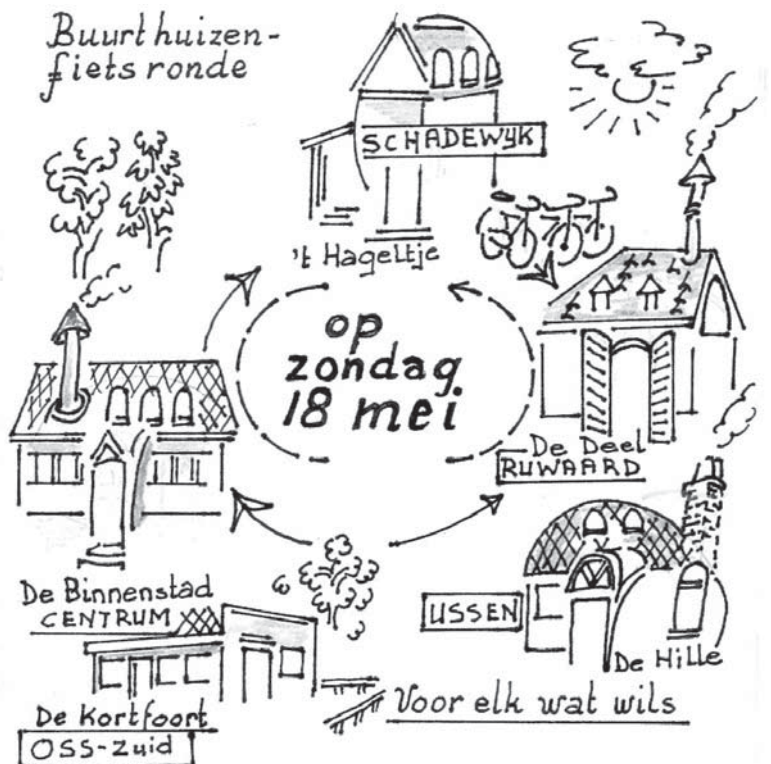 Buurthuizen-
fietsronde
SCHADEWYK
't Hageltje
op
zondag
18 mei
De Deel
RUWAARD
De Binnenstad
CENTRUM
USSEN
De Hille
De Kortfoort
OSS-Zuid
Voor elk wat wils